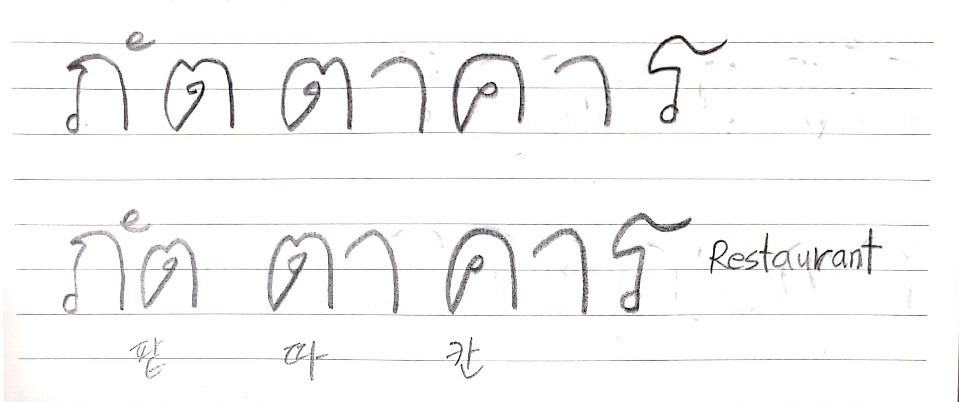 ภัตตาคาร
ภัต ตา คาร Restaurant
팥 따 칸